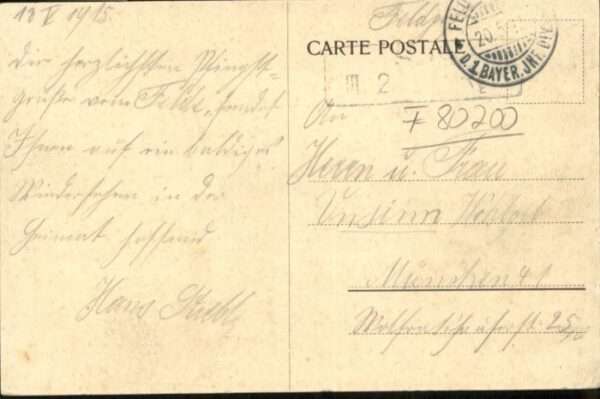 18 V 1915.
Die herzlichsten Pfingst-
grüße vom Felde, sendet
Ihnen auf ein baldiges
Wiedersehen in der
Heimat hoffend
Hans
Feldp
CARTE POSTALE
FELD
20.5
D.1.BAYER.INF.
III 2
An
F 80200
Herrn u. Frau
München 41
25